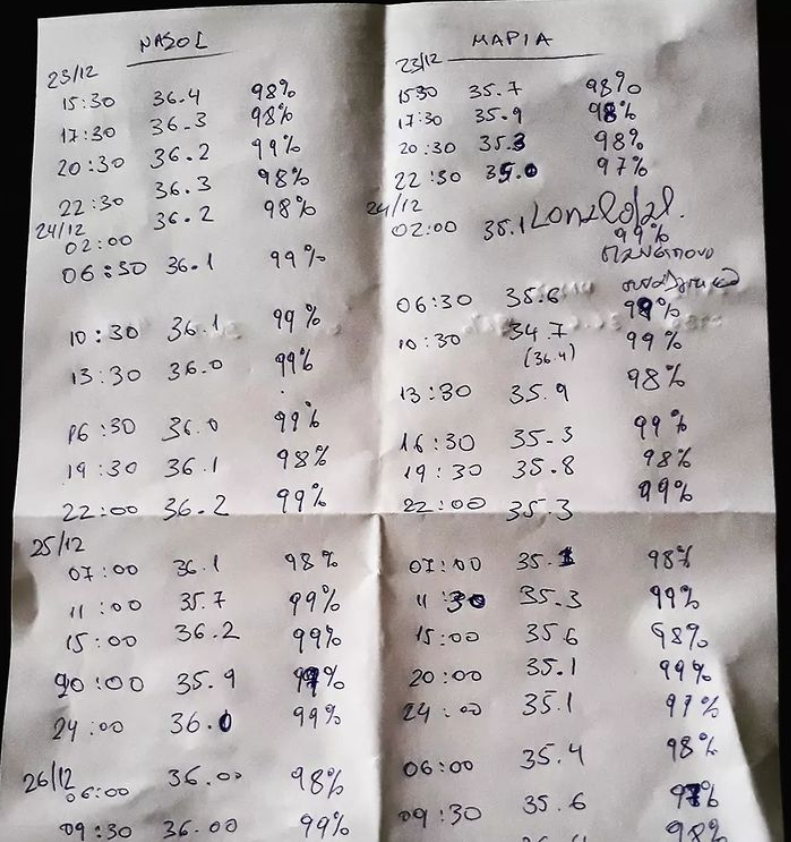 NASOL
23/12
15:30 36.4 98%
17:30 36.3 98%
20:30 36.2 99%
22:30 36.3 98%
24/12
02:00 36.2 98%
06:30 36.1 99%
10:30 36.1 99%
13:30 36.0 99%
16:30 36.0 99%
19:30 36.1 98%
22:00 36.2 99%
25/12
07:00 36.1 98%
11:00 35.7 99%
15:00 36.2 99%
20:00 35.9 99%
24:00 36.0 99%
26/12
06:00 36.00 98%
09:30 36.00 99%
ΜΑΡΙΑ
23/12
15:30 35.7 98%
17:30 35.9 98%
20:30 35.3 98%
22:30 35.0 97%
24/12
02:00 35.1 Lonalgal.
99%
06:30 35.6 98%
10:30 34.7 99%
(36.4)
13:30 35.9 98%
16:30 35.3 99%
19:30 35.8 98%
22:00 35.3 99%
07:00 35.1 98%
11:30 35.3 99%
15:00 35.6 98%
20:00 35.1 99%
24:00 35.1 97%
06:00 35.4 98%
09:30 35.6 97%
98%